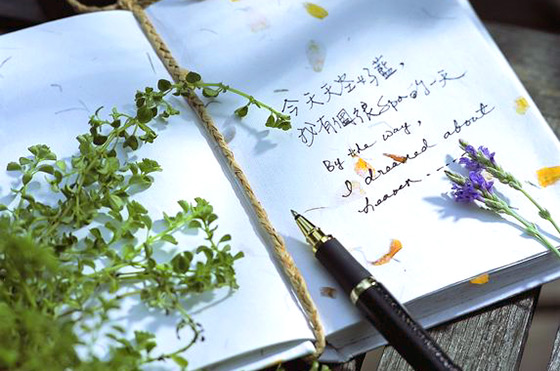 今天天空好藍,
我有個很Spa的一天
By the way,
I dreamed about
heaven....